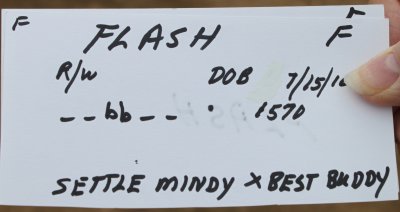 F F
FLASH F
R/W DOB 7/15/1
--bb-- 1570
SETTLE MINDY X BEST BUDDY